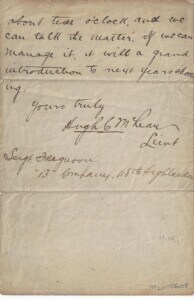 about tea o'clock, and we
can talk the matter, if we can
manage it, it will a grand
introduction to new years
ing
Yours truly
Hugh C McLean
Lieut
Sergt Ferguson
"B" Company, 48th Highlanders